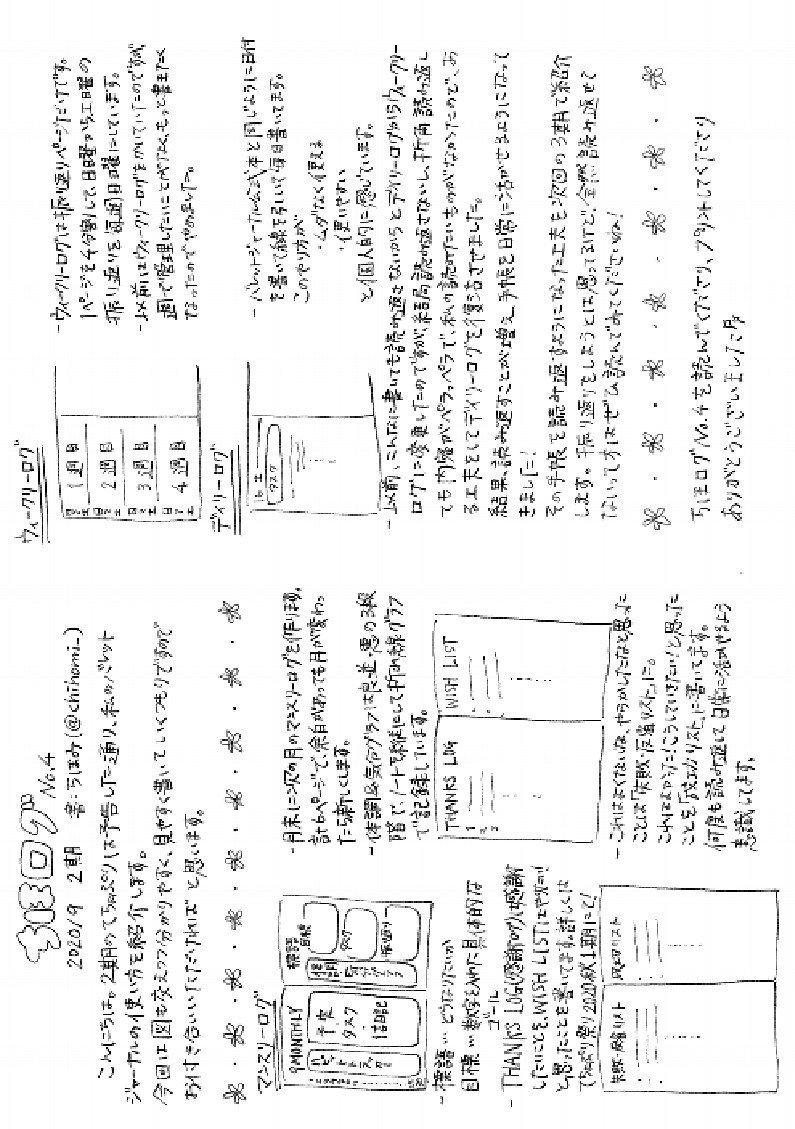 ちほログ No.4
2020/9 2期 著:ちほみ(@chihomi_)
こんにちは。2期のてちょぷりは予告した通り、私のバレット
ジャーナルの使い方を紹介します。
今回は図も交えつつ分かりやすく、見やすく書いていくつもりですので
お付き合いいただければと思います。
マンスリーログ
9 MONTHLY
予定
タスク
1行日記
標語
目標
タスク
振り返り
- 月末に次の月のマンスリーログを作ります。
計6ページで、余白があっても月が変わっ
たら新しくします。
- 体調&気分グラフは良・並・悪の3段
階で、ノートを縦にして折れ線グラフ
で記録しています。
- 標語…どうなりたいか
目標…数字を入れた具体的な
ゴール
- THANKS LOG(感謝ログ)は感謝
したいことを、WISH LISTはやりたい!
と思ったことを書いてます。詳しくは
てちょぷり祭り2020秋1期にて!
THANKS LOG
WISH LIST
失敗・反省リスト
成功リスト
- これは良くないな、やらかしたなと思った
ことは「失敗・反省リスト」に。
これはよかった!こうしていきたい!と思った
ことを「成功リスト」に書いてます。
何度も読み返して日常に活かせるよう
意識してます。
ウィークリーログ
1週目
2週目
3週目
4週目
- ウィークリーログは振り返りページだけです。
1ページを4分割して日曜から土曜の
振り返りを毎週日曜にしています。
- 以前はウィークリーログをかいていたのですが、
週で管理したいことがなく、もっと書きたく
なったのでやめました。
デイリーログ
タスク
- バレットジャーナル公式本と同じように日付
を書いて線を引いて毎日書いてます。
このやり方が
・ムダなく使える
・使いやすい
と個人的に感じています。
- 以前、こんなに書いても読み返さないからとデイリーログからウィークリー
ログに変更したのですが、結局読み返さないし、折角読み返し
ても内容がペラッペラで、私の読みたいものがなかったので、あ
る工夫としてデイリーログを復活させました。
結果、読み返すことが増え、手帳を日常に活かせるようになって
きました!
その手帳を読み返すようになった工夫を次回の3期で紹介
します。振り返りをしようとは思ってるけど、全然読み返せて
ないって方はぜひ読んでみてくださいね!
ちほログNo.4を読んでくださり、プリントしてくださり
ありがとうございました!